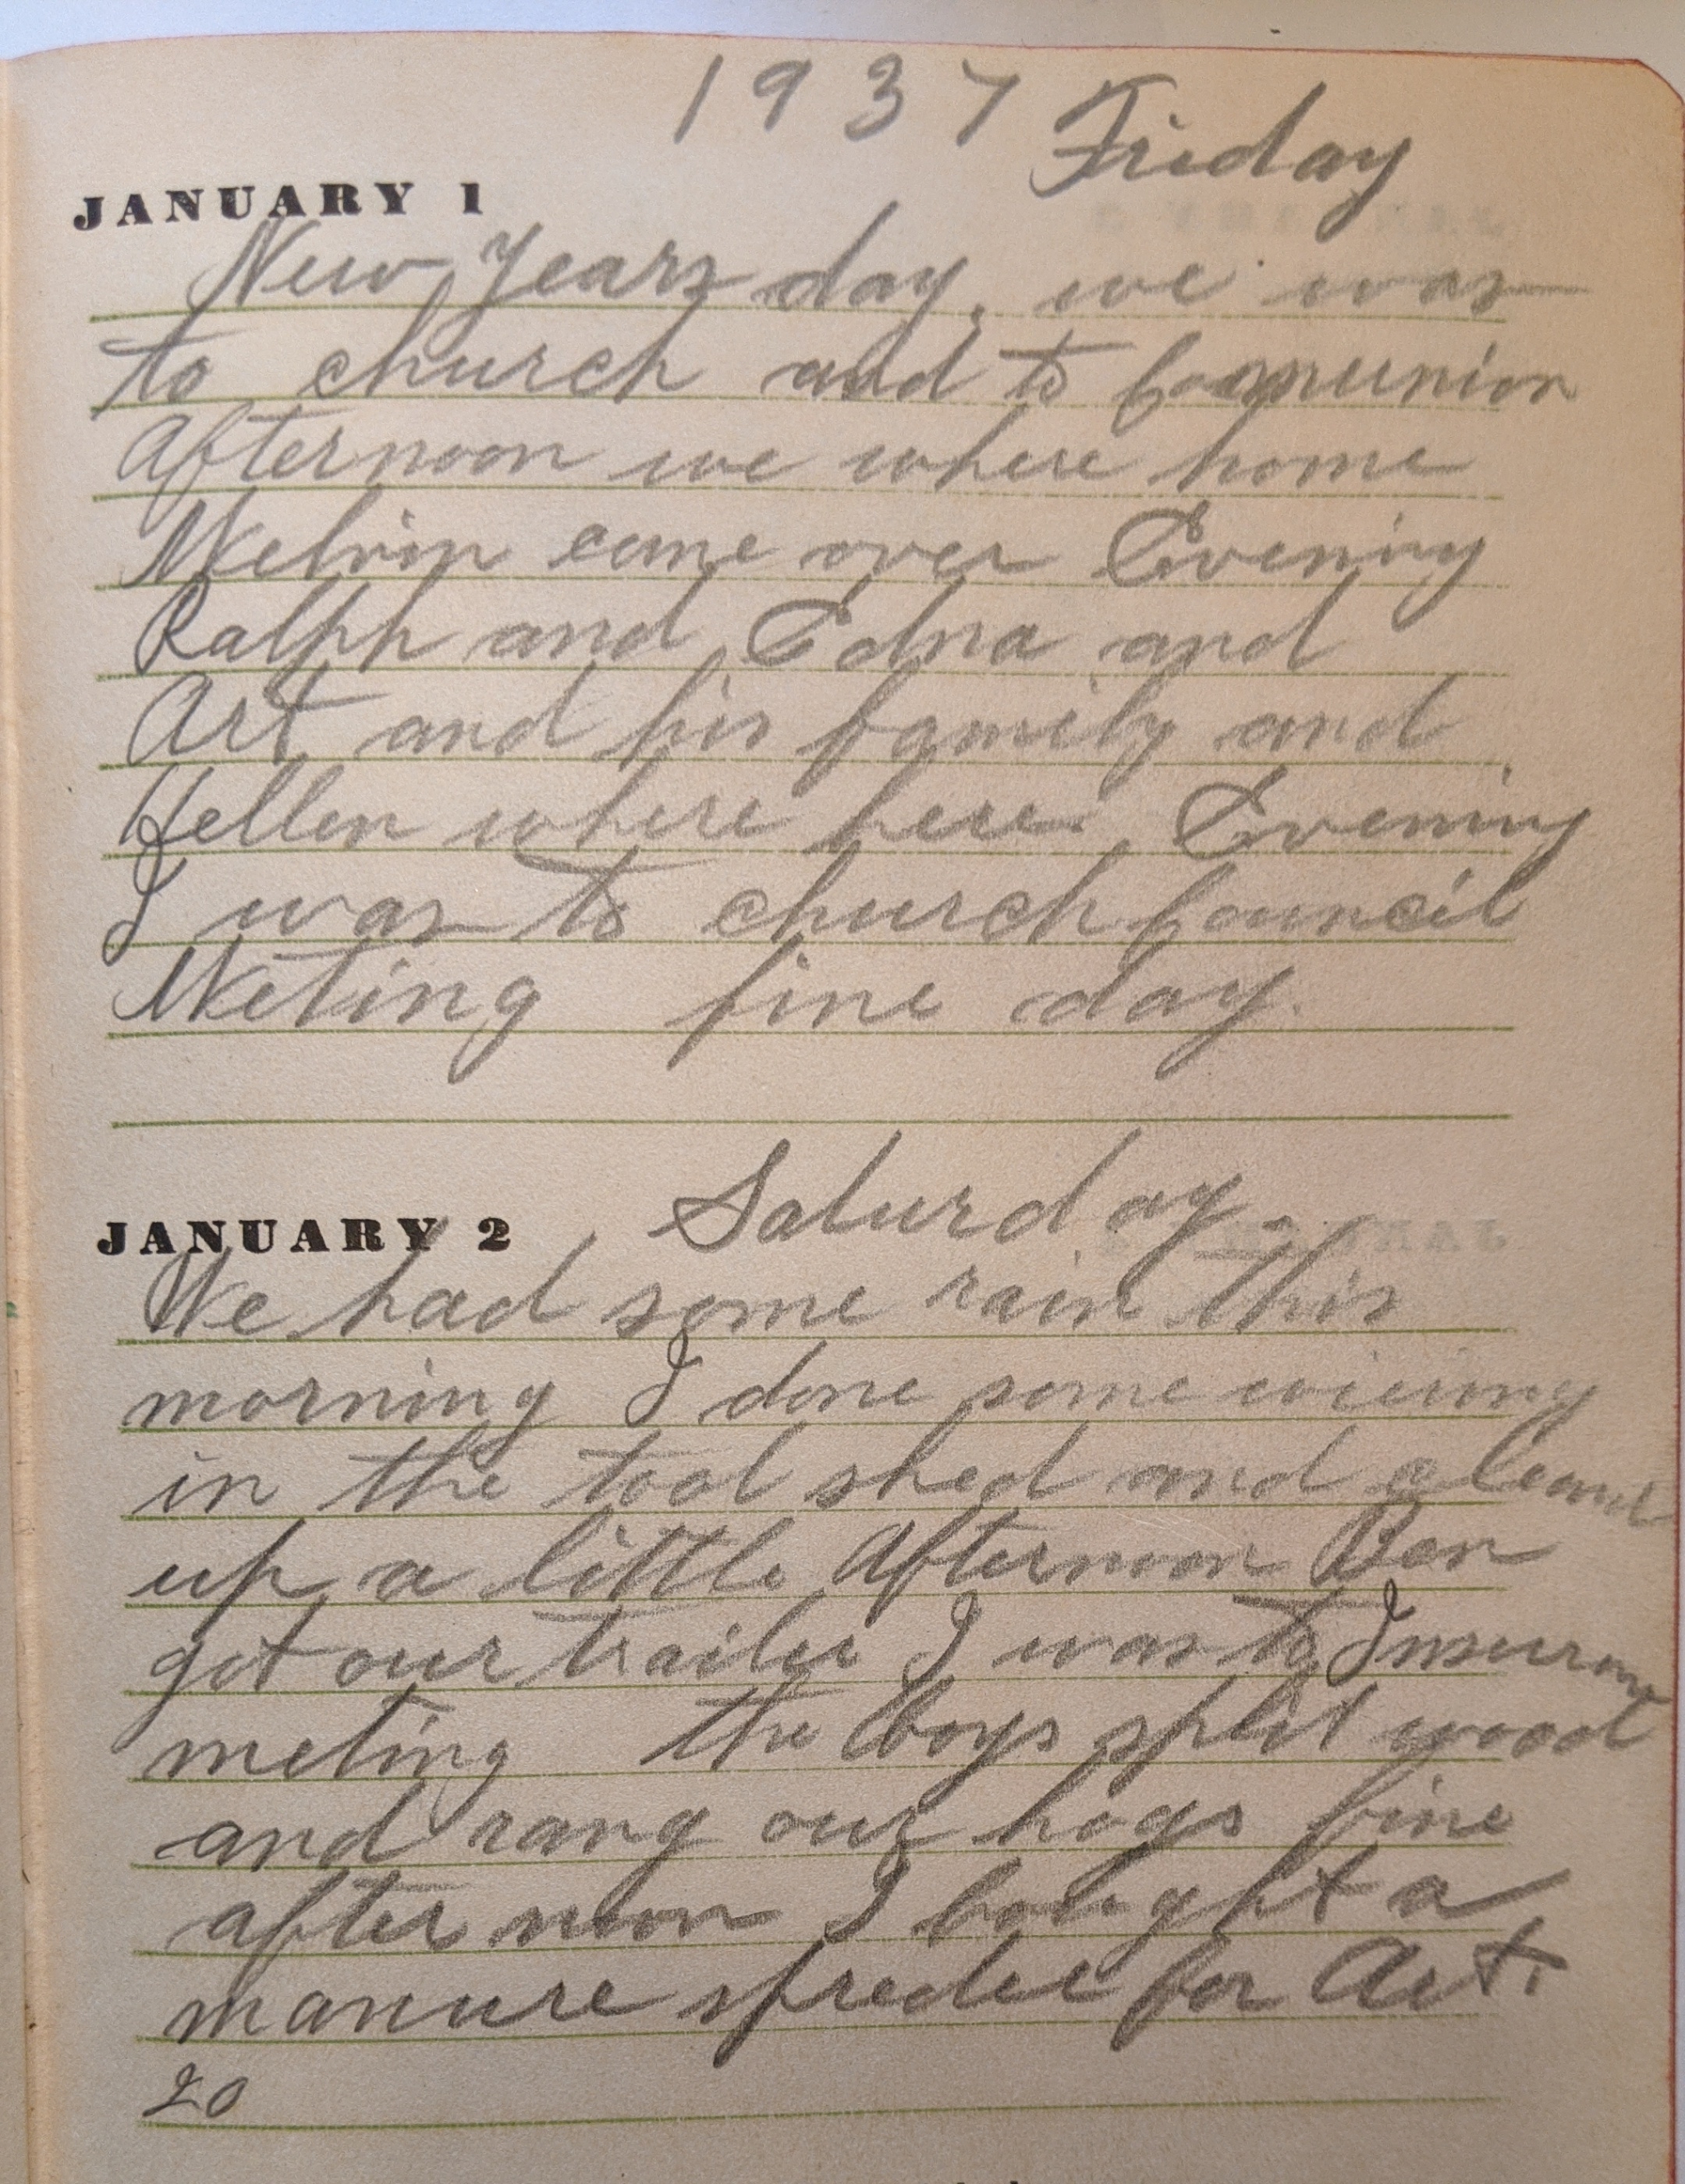 1937 Friday
JANUARY 1
New Years day, we was
to church and to Communion
Afternoon we where home
Melvin came over Evening
Ralph and Edna and
Art and his family and
Hellen where here. Evening
I was to church Council
Meting fine day.
JANUARY 2 Saturday
We had some rain this
morning I done some wiering
in the tool shed and cleand
up a little Afternoon Ben
got our trailer I was to Insurance
meting the boys split wood
and rang our hogs fine
after noon I bought a
manure spreder for Art.
20